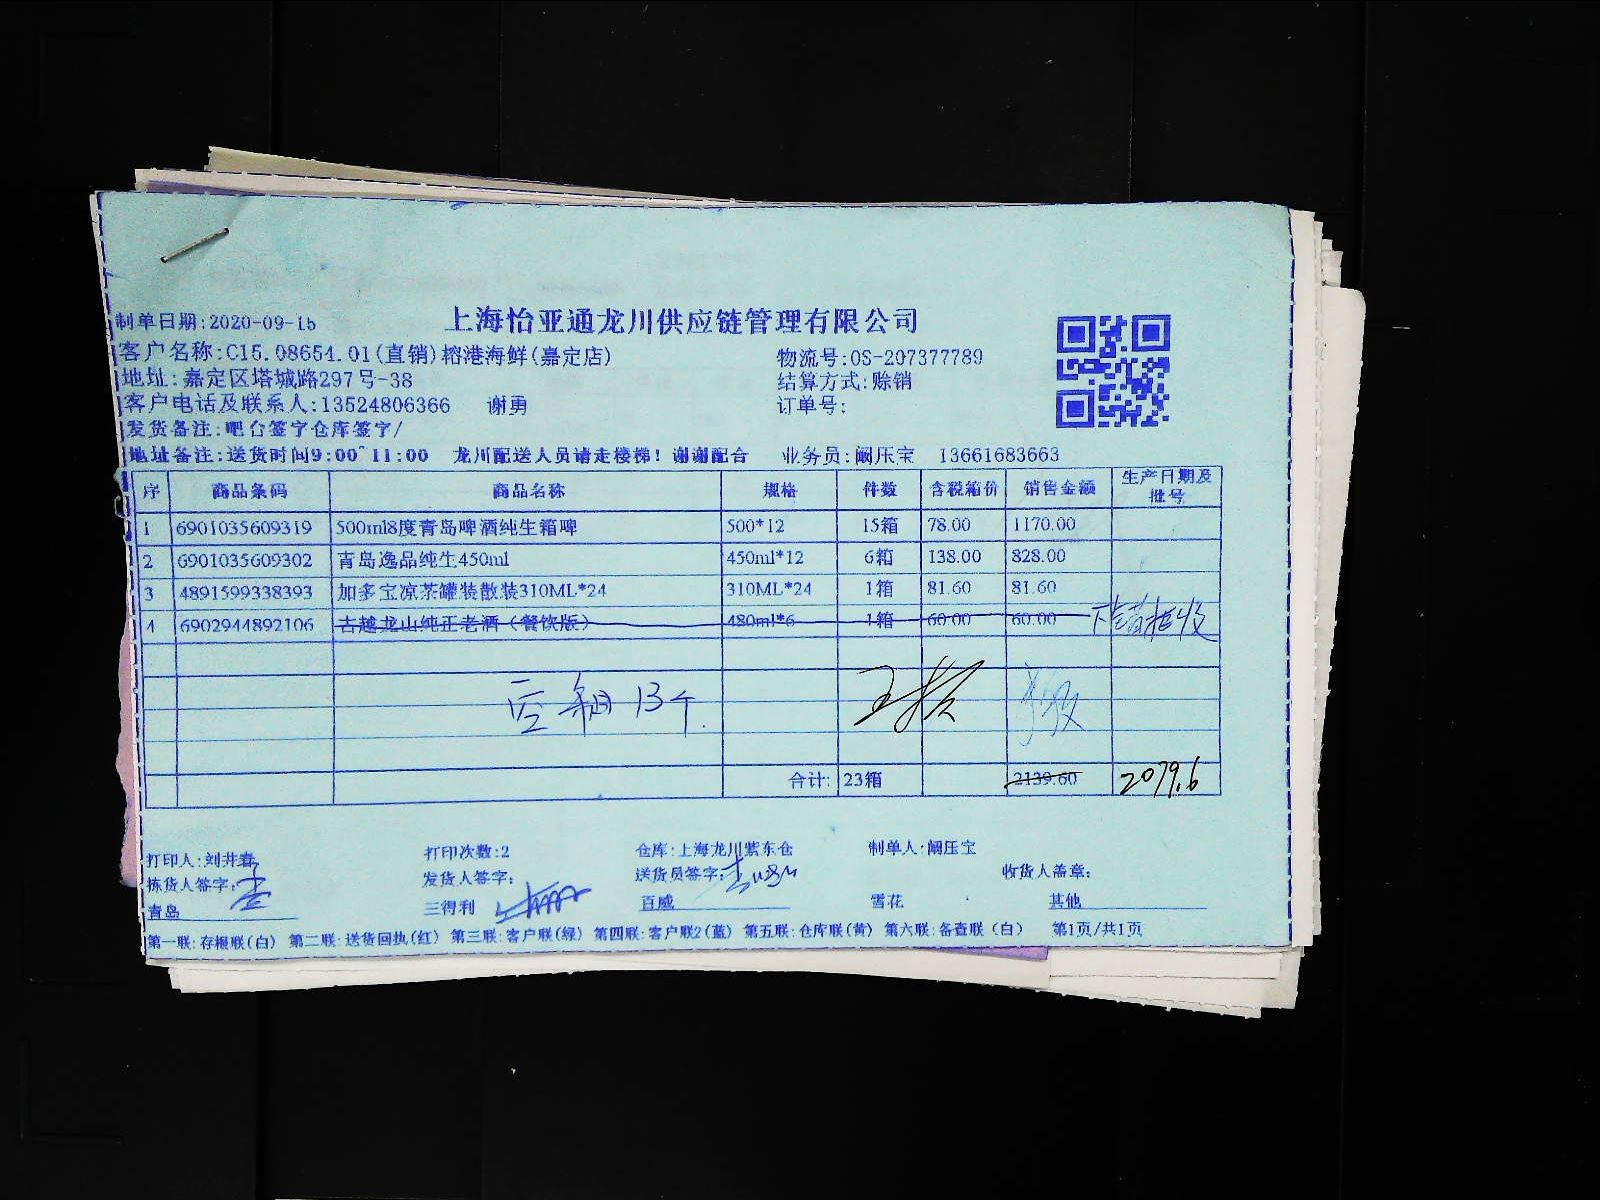 上海怡亚通龙川供应链管理有限公司
制单日期:2020-09-15
客户名称:C15.08654.01(直销)榕港海鲜(嘉定店) 物流号:OS-207377789
地址:嘉定区塔城路297号-38 结算方式:赊销
客户电话及联系人:13524806366 谢勇 订单号:
发货备注:吧台签字仓库签字/
地址备注:送货时间9:00~11:00 龙川配送人员请走楼梯!谢谢配合 业务员:阚压宝 13661683663
序 商品条码 商品名称 规格 件数 含税箱价 销售金额 生产日期及批号
1 6901035609319 500ml8度青岛啤酒纯生箱啤 500*12 15箱 78.00 1170.00
2 6901035609302 青岛逸品纯生450ml 450ml*12 6箱 138.00 828.00
3 4891599338393 加多宝凉茶罐装散装310ML*24 310ML*24 1箱 81.60 81.60
4 6902944892106 古越龙山纯正老酒(餐饮版) 480ml*6 1箱 60.00 60.00
空箱13个.
合计: 23箱 2139.60 2079.6
打印人:刘井春 打印次数:2 仓库:上海龙川紫东仓 制单人:阚压宝
拣货人签字: 发货人签字: 送货员签字: 收货人盖章:
青岛 三得利 百威 雪花 其他
第一联:存根联(白) 第二联:送货回执(红) 第三联:客户联(绿) 第四联:客户联2(蓝) 第五联:仓库联(黄) 第六联:备查联(白) 第1页/共1页